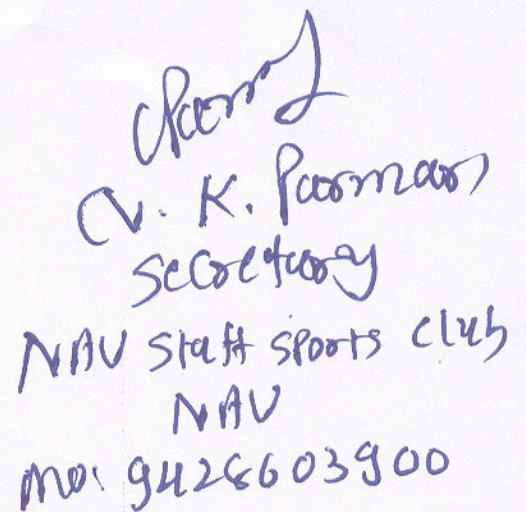 (V. K. Parmar)
Secretary
NAU Staff Sports Club
NAU
Mo: 9428603900